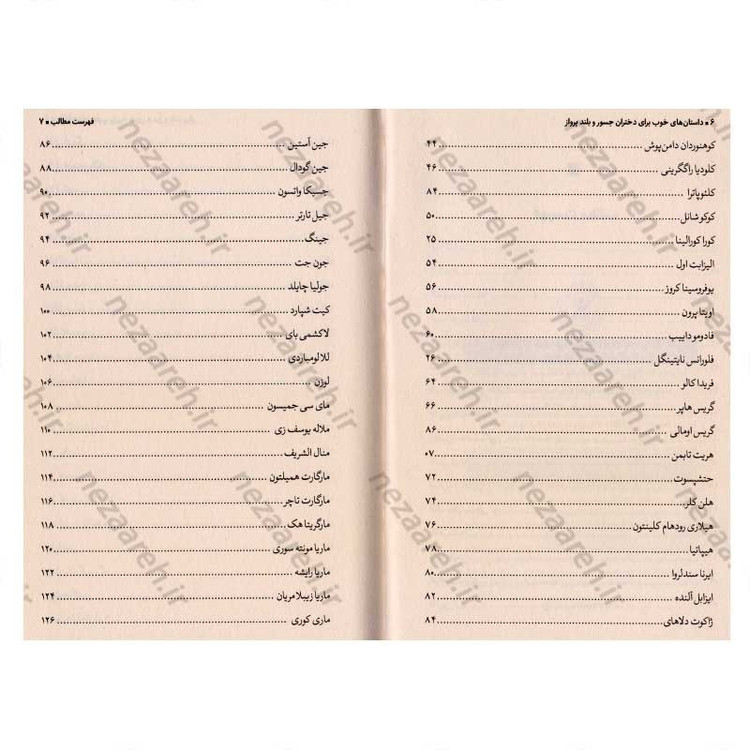 ۶ ■ داستان‌های خوب برای دختران جسور و بلند پرواز
کوهنوردان دامن‌پوش ۴۴
کلودیا راگگرینی ۴۶
کلئوپاترا ۸۴
کوکو شانل ۵۰
کورا کورالینا ۲۵
الیزابت اول ۵۴
یوفروسینا کروز ۵۶
اویتا پرون ۵۸
فادومو داییب ۶۰
فلورانس نایتینگل ۲۶
فریدا کالو ۶۴
گریس هاپر ۶۶
گریس اومالی ۸۶
هریت تابمن ۰۷
حتشپسوت ۷۲
هلن کلر ۷۴
هیلاری رودهام کلینتون ۷۶
هیپاتیا ۷۸
ایرنا سندلروا ۸۰
ایزابل آلنده ۸۲
ژاکوت دلاهای ۸۴
فهرست مطالب ■ ۷
جین آستین ۸۶
جین گودال ۸۸
جسیکا واتسون ۹۰
جیل تارتر ۹۲
جینگ ۹۴
جون جت ۹۶
جولیا چایلد ۹۸
کیت شپارد ۱۰۰
لاکشمی بای ۱۰۲
للا لومباردی ۱۰۴
لوزن ۱۰۶
مای سی جمیسون ۱۰۸
ملاله یوسف زی ۱۱۰
منال الشریف ۱۱۲
مارگارت همیلتون ۱۱۴
مارگارت تاچر ۱۱۶
مارگریتا هک ۱۱۸
ماریا مونته سوری ۱۲۰
ماریا رایشه ۱۲۲
ماریا زیبلا مریان ۱۲۴
ماری کوری ۱۲۶
nezaareh.ir